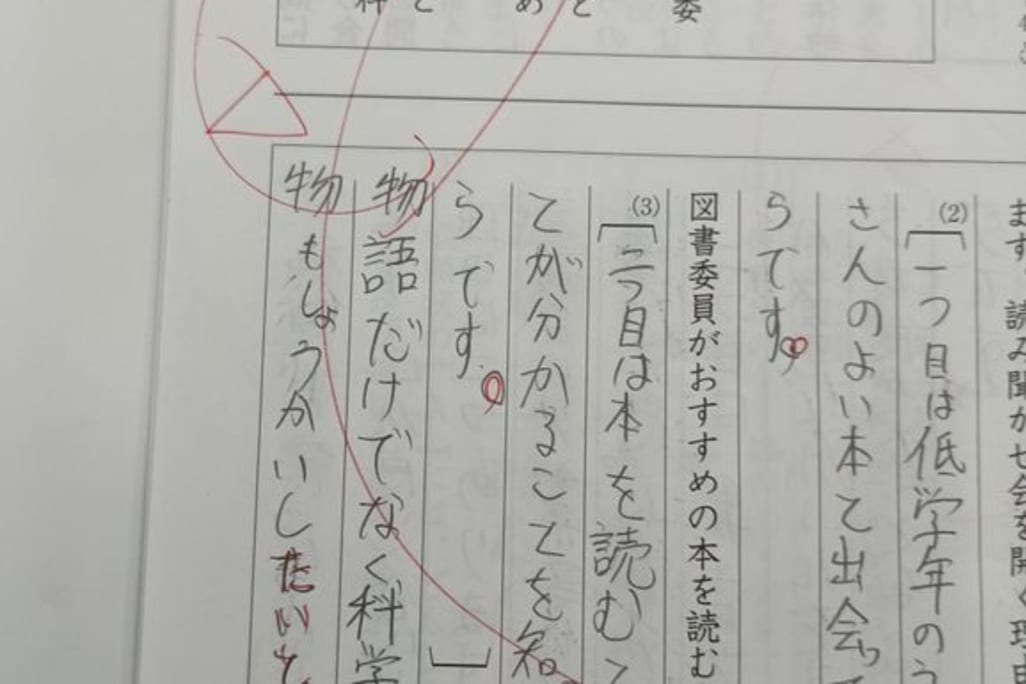 ます。読み聞かせ会を開く理由
(2)
一つ目は低学年のう
さんのよい本と出会っ
らです。
図書委員がおすすめの本を読む
(3)
二つ目は本を読むこ
とが分かることを知
らです。
物語だけでなく科学
物もしょうかいしたいと